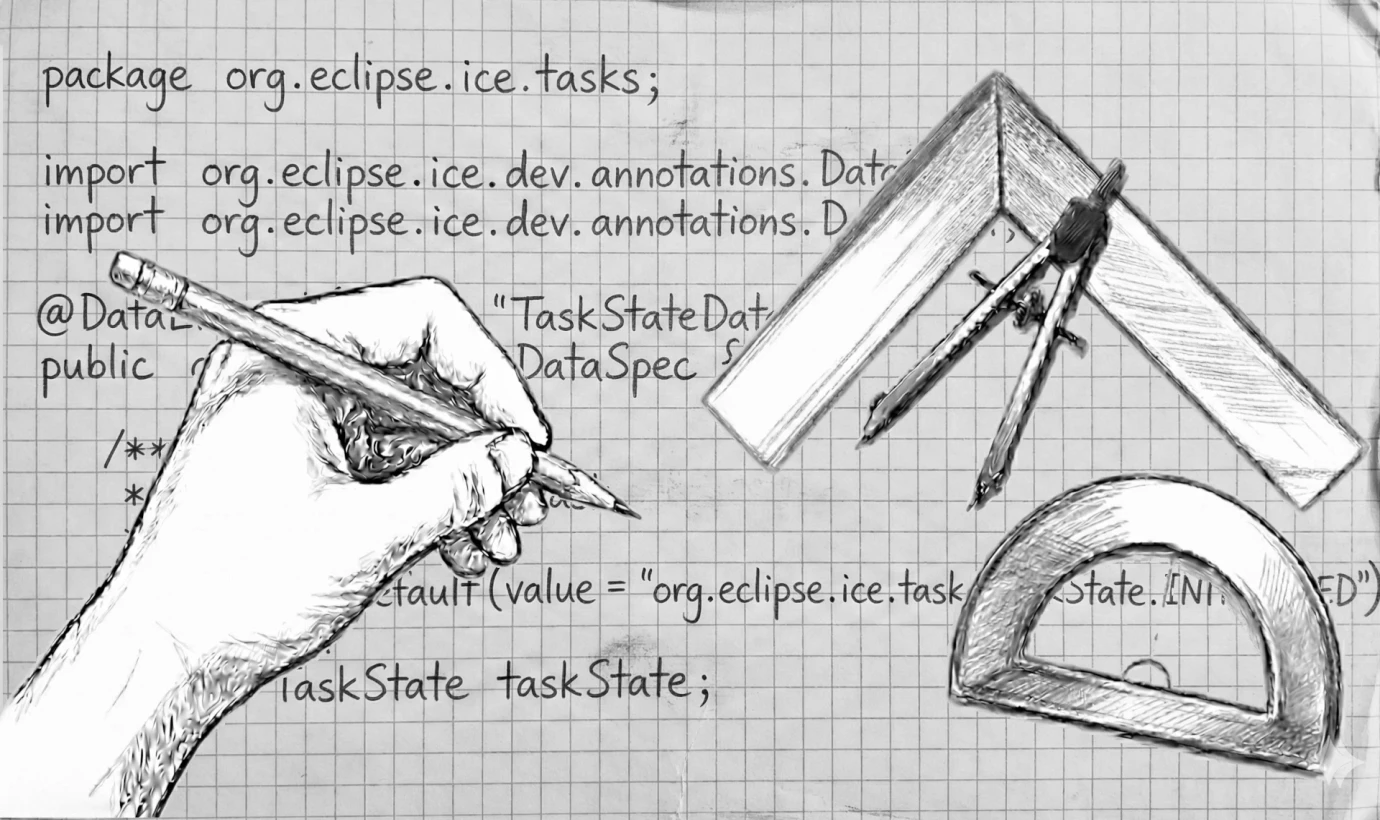 package org.eclipse.ice.tasks;
import org.eclipse.ice.dev.annotations.
import org.eclipse.ice.dev.annotations.
"TaskStateDat
public DataSpec
/**
*
(value = "org.eclipse.ice.task State.
TaskState taskState;